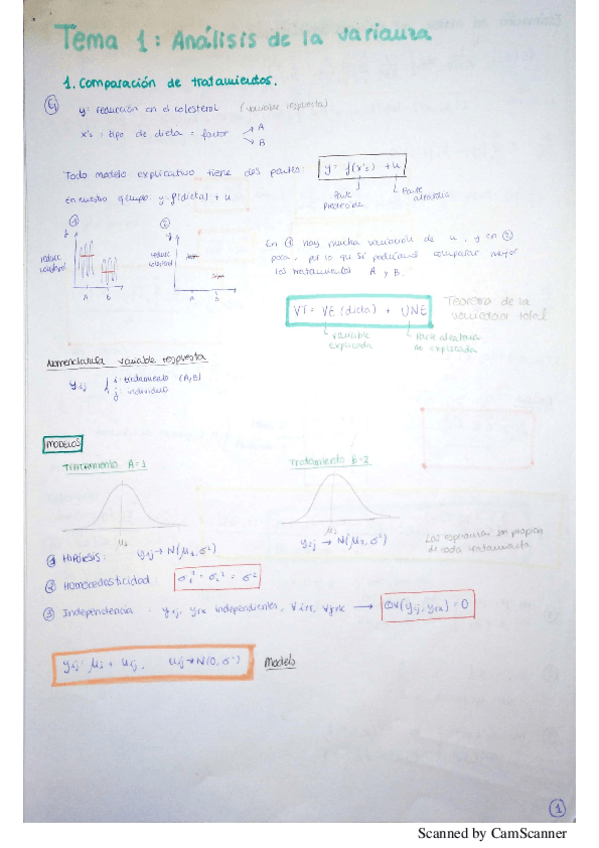 Tema 1: Análisis de la varianza
1. Comparación de tratamientos.
Ej y = reducción en el colesterol (variable respuesta)
x's = tipo de dieta = factor A B
Todo modelo explicativo tiene dos partes: y = f(x's) + u
Parte
Parte aleatoria
En nuestro ejemplo: y = f(dieta) + u
① ②
y y
reducc colesterol
reducc colesterol
A B
A B
En ① hay mucha variación de u, y en ②
poca, por lo que sí podríamos comparar mejor
los tratamientos A y B.
VT = VE (dieta) + VNE
Teorema de la
variedad total
variable
explicada
Parte aleatoria
no explicada
Nomenclatura variable respuesta
yij i: tratamiento (A,B)
j: individuo
MODELOS
TRATAMIENTO A=1
Tratamiento B=2
μ1
μ2
① Hipótesis: y1j → N(μ1, σ²)
y2j → N(μ2, σ²)
Las esperanzas son propias
de cada tratamiento
② Homocedasticidad: σ1² = σ2² = σ²
③ Independencia: yij, yrk independientes, ∀i≠r, ∀j≠k → Cov(yij, yrk) = 0
yij = μi + uij, uij → N(0, σ²) Modelo
1
Scanned by CamScanner